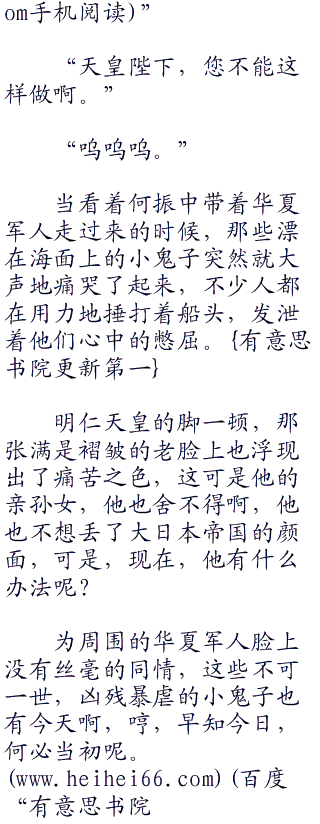 om手机阅读)”
“天皇陛下，您不能这
样做啊。”
“呜呜呜。”
当看着何振中带着华夏
军人走过来的时候，那些漂
在海面上的小鬼子突然就大
声地痛哭了起来，不少人都
在用力地捶打着船头，发泄
着他们心中的憋屈。{有意思
书院更新第一}
明仁天皇的脚一顿，那
张满是褶皱的老脸上也浮现
出了痛苦之色，这可是他的
亲孙女，他也舍不得啊，他
也不想丢了大日本帝国的颜
面，可是，现在，他有什么
办法呢？
为周围的华夏军人脸上
没有丝毫的同情，这些不可
一世，凶残暴虐的小鬼子也
有今天啊，哼，早知今日，
何必当初呢。
(www.heihei66.com)(百度
“有意思书院